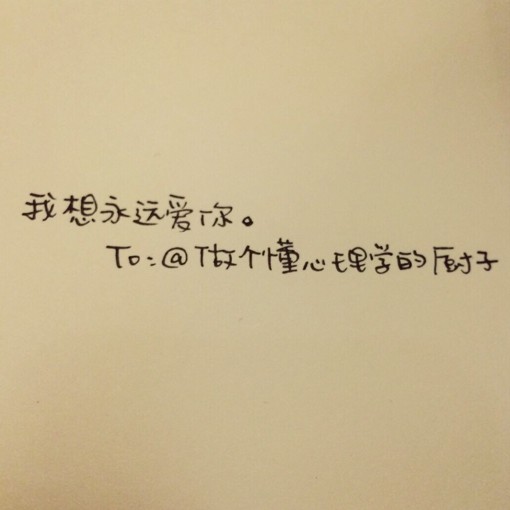 我想永远爱你。
To:@做个懂心理学的厨子